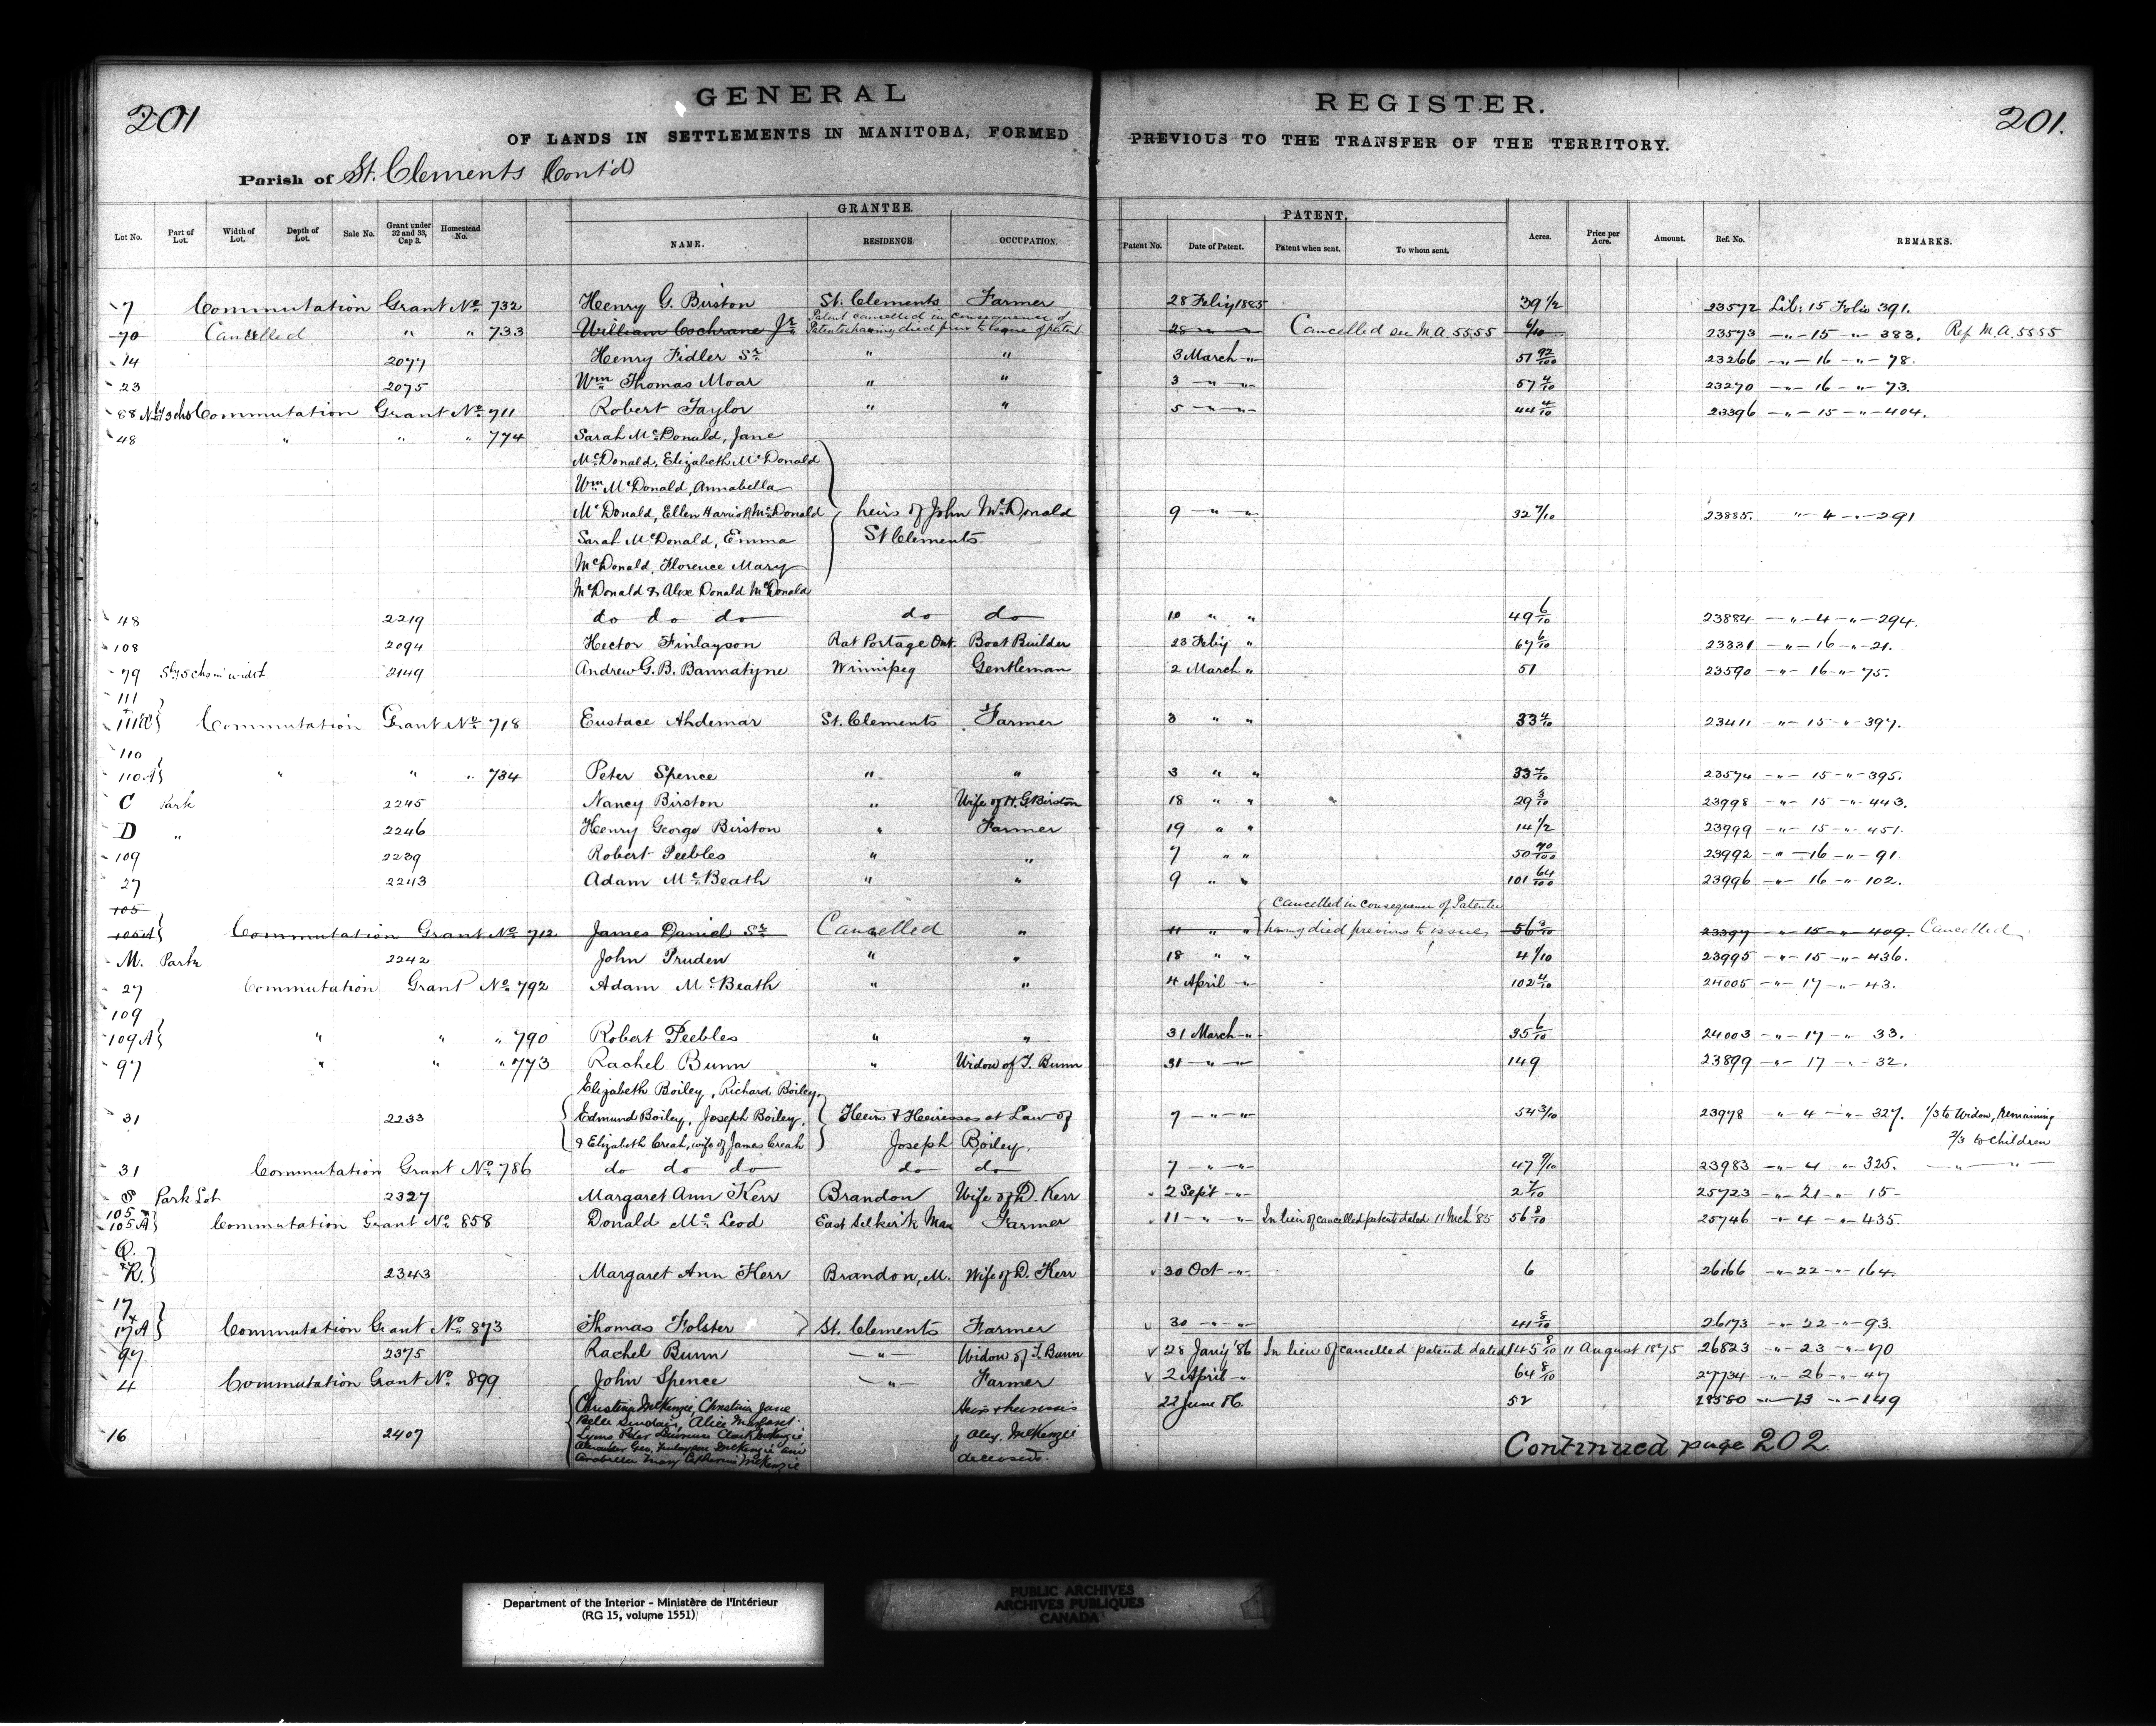 201 GENERAL REGISTER. 201.
OF LANDS IN SETTLEMENTS IN MANITOBA, FORMED PREVIOUS TO THE TRANSFER OF THE TERRITORY.
Parish of St. Clements Cont'd
GRANTEE. PATENT.
Lot No. Part of Lot. Width of Lot. Depth of Lot. Sale No. Grant under 32 and 33, Cap 3. Homestead No. NAME. RESIDENCE OCCUPATION. Patent No. Date of Patent. Patent when sent. To whom sent. Acres. Price per Acre. Amount. Ref. No. REMARKS.
7 Commutation Grant No 732 Henry G. Birston St. Clements Farmer 28 Feby 1885 39 1/2 23572 Lib: 15 Folio 391.
Patent cancelled in consequence of
70 Cancelled " " 733 William Cochrane Jr. Patentee having died prior to issue of patent 28 " " Cancelled see M.A. 5555 6/10 23573 " 15 " 383. Ref M.A. 5555
14 2077 Henry Fidler Sr. " " 3 March " 51 92/100 23266 " 16 " 78.
23 2075 Wm Thomas Moar " " 3 " " 57 4/10 23270 " 16 " 73.
88 Nly 3 chs Commutation Grant No 711 Robert Taylor " " 5 " " 44 4/10 23396 " 15 " 404.
48 " " " 774 Sarah McDonald, Jane
McDonald, Elizabeth McDonald
Wm McDonald, Annabella
McDonald, Ellen Harriott McDonald heirs of John McDonald 9 " " 32 7/10 23885. " 4 " 291
Sarah McDonald, Emma St Clements
McDonald, Florence Mary
McDonald & Alex Donald McDonald
48 2219 do do do do do 10 " " 49 6/10 23884 " 4 " 294.
108 2094 Hector Finlayson Rat Portage Ont. Boat Builder 23 Feby " 67 6/10 23331 " 16 " 21.
79 Sly 5 chs in width 2149 Andrew G. B. Bannatyne Winnipeg Gentleman 2 March " 51 23590 " 16 " 75.
111
111 Commutation Grant No 718 Eustace Ahdemar St. Clements Farmer 3 " " 33 4/10 23411 " 15 " 397.
110
110A " " " 734 Peter Spence " " 3 " " 33 7/10 23574 " 15 " 395.
C Park 2245 Nancy Birston " Wife of H. G. Birston 18 " " " 29 3/10 23998 " 15 " 443.
D " 2246 Henry George Birston " Farmer 19 " " 14 1/2 23999 " 15 " 451.
109 2239 Robert Peebles " " 7 " " 50 70/100 23992 " 16 " 91
27 2243 Adam McBeath " " 9 " " 101 64/100 23996 " 16 " 102.
105 Cancelled in consequence of Patentee
105A Commutation Grant No 712 James Daniel Sr. Cancelled " 11 " " having died previous to issue, 56 3/10 23397 " 15 " 409. Cancelled
M. Park 2242 John Pruden " " 18 " " 4 1/10 23995 " 15 " 436.
27 Commutation Grant No 792 Adam McBeath " " 4 April " 102 4/10 24005 " 17 " 43.
109
109A " " " 790 Robert Peebles " " 31 March " 35 6/10 24003 " 17 " 33.
97 " " " 773 Rachel Bunn " Widow of T. Bunn 31 " " 149 23899 " 17 " 32.
Elizabeth Boiley, Richard Boiley,
31 2233 Edmund Boiley, Joseph Boiley, Heirs & Heiresses at Law of 7 " " 54 3/10 23978 " 4 " 327. 1/3 to Widow, Remaining
& Elizabeth Creah, wife of James Creah Joseph Boiley. 2/3 to children
31 Commutation Grant No 786 do do do do do 7 " " 47 9/10 23983 " 4 " 325. " "
Park Lot 2327 Margaret Ann Kerr Brandon Wife of D. Kerr 2 Sept " 2 7/10 25723 " 21 " 15
105
105A Commutation Grant No 858 Donald McLeod East Selkirk Man Farmer 11 " " In lieu of cancelled patent dated 11 Mch '85 56 8/10 25746 " 4 " 435.
Q.
& R. 2343 Margaret Ann Kerr Brandon, M. Wife of D. Kerr 30 Oct " 6 26166 " 22 " 164.
17
& 17A Commutation Grant No 873 Thomas Folster St. Clements Farmer 30 " " 41 8/10 26173 " 22 " 93.
97 2375 Rachel Bunn " Widow of T. Bunn 28 Jany '86 In lieu of cancelled patend dated 145 8/10 11 August 1875 26823 " 23 " 70
4 Commutation Grant No 899 John Spence " Farmer 2 April " 64 8/10 27734 " 26 " 47
Christina McKenzie, Christina Jane Heirs & heiresses 22 June 86. 52 28580 " 13 " 149
Belle Sinclair, Alice Margaret
16 2407 Lyons Peter Clark McKenzie of Alex. McKenzie
Alexander Geo. Finlayson McKenzie and
Arabella Mary Catherine McKenzie deceased.
Continued page 202.
Department of the Interior - Ministère de l'Intérieur
(RG 15, volume 1551)
PUBLIC ARCHIVES
ARCHIVES PUBLIQUES
CANADA